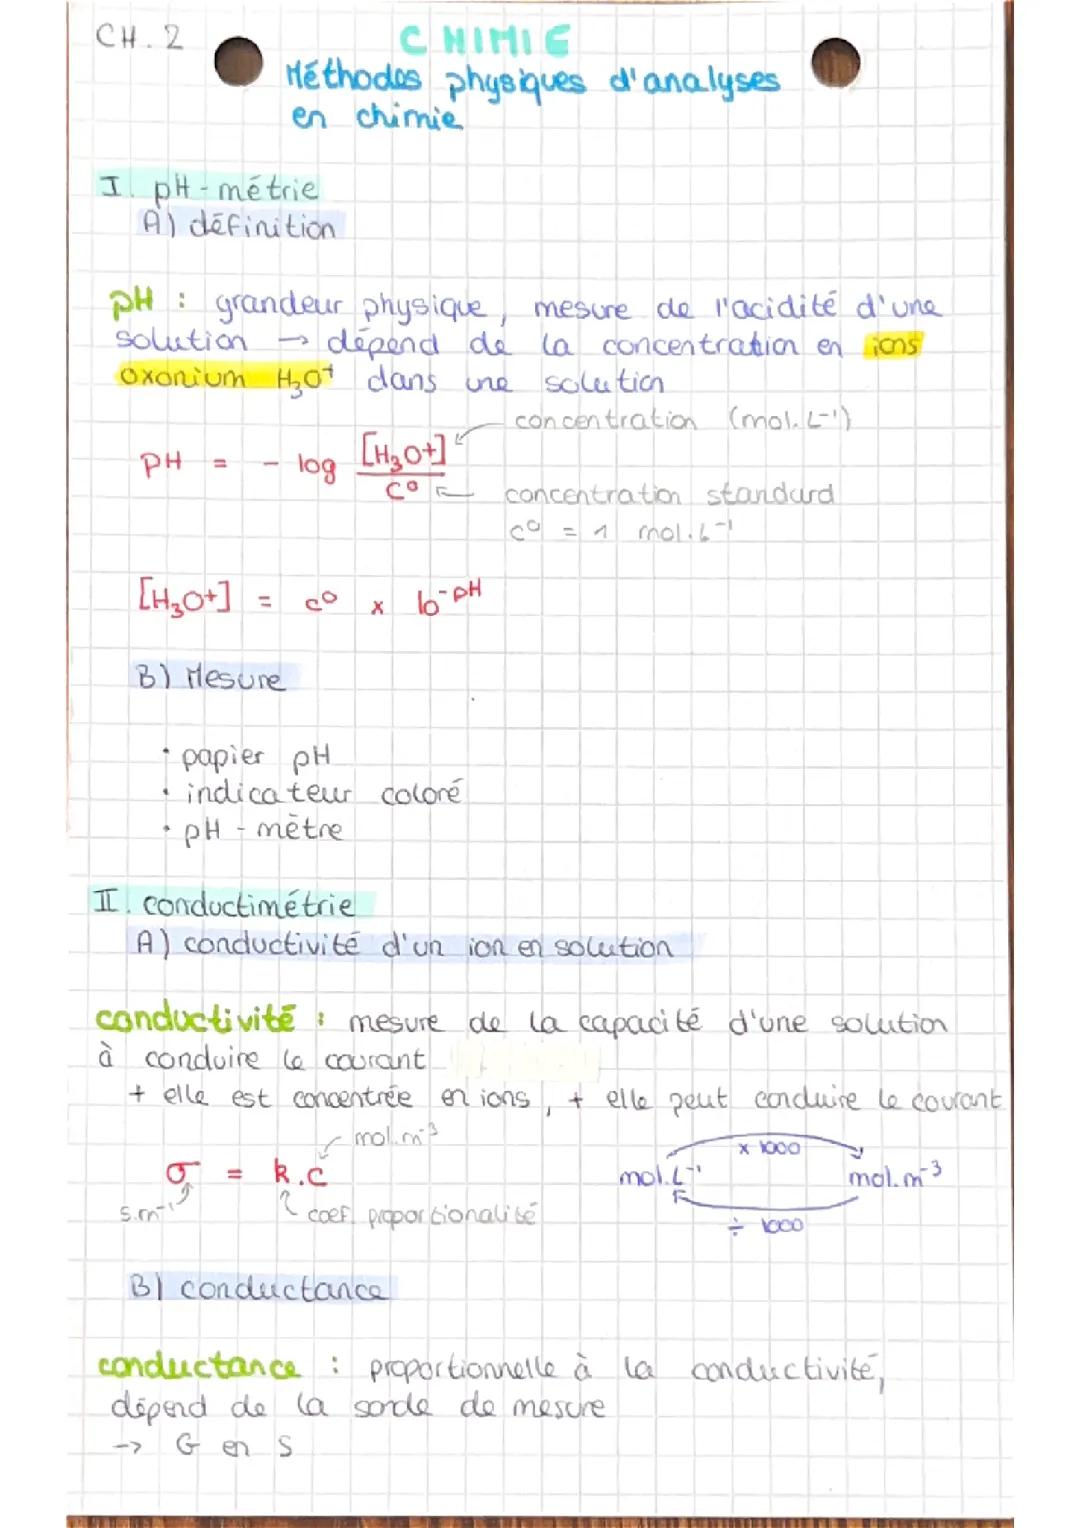 CH. 2
CHIMIE
Méthodes physiques d'analyses
en chimie
I. pH-métrie
A) définition
pH : grandeur physique, mesure de l'acidité d'une
solution → dépend de la concentration en ions
oxonium H₃O⁺ dans une solution
concentration (mol.L⁻¹)
pH = - log [H₃O⁺] / C⁰
concentration standard
c⁰ = 1 mol.L⁻¹
[H₃O⁺] = c⁰ x 10⁻ᵖᴴ
B) Mesure
• papier pH
• indicateur coloré
• pH-mètre
II. conductimétrie
A) conductivité d'un ion en solution
conductivité : mesure de la capacité d'une solution
à conduire le courant
+ elle est concentrée en ions, + elle peut conduire le courant
mol.m⁻³
σ = k.c
S.m⁻¹
coef. proportionalité
x 1000
mol.L⁻¹ mol.m⁻³
÷ 1000
B) conductance
conductance : proportionnelle à la conductivité,
dépend de la sonde de mesure
-> G en S